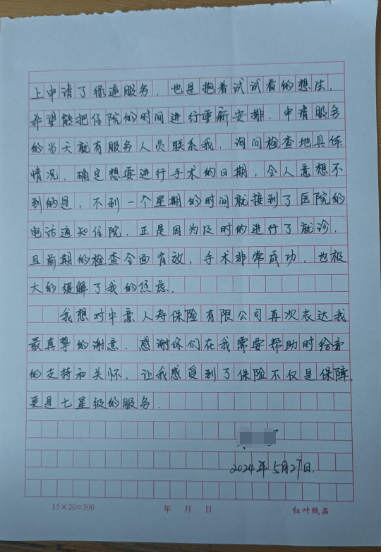 上申请了绿通服务，也是抱着试试看的想法，
希望能把住院的时间进行重新安排。申请服务
的当天就有服务人员联系我，询问检查地具体
情况，确定想要进行手术的日期，令人意想不
到的是，不到一个星期的时间就接到了医院的
电话通知住院，正是因为及时的进行了就诊，
且前期的检查全面有效，手术非常成功，也极
大的缓解了我的焦虑。
我想对中意人寿保险有限公司再次表达我
最真挚的谢意，感谢你们在我需要帮助时给予
的支持和关怀，让我感受到了保险不仅是保障，
更是七星级的服务。
2024年5月27日.
15×20=300 年 月 日 红叶纸品